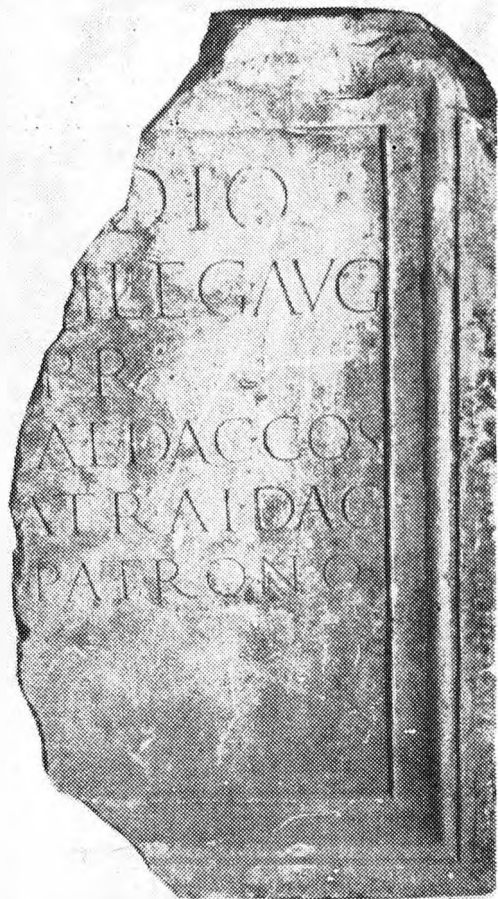 DIO
LEG AVG
PR
AL DAC COS
A TRAI DAC
PATRONO